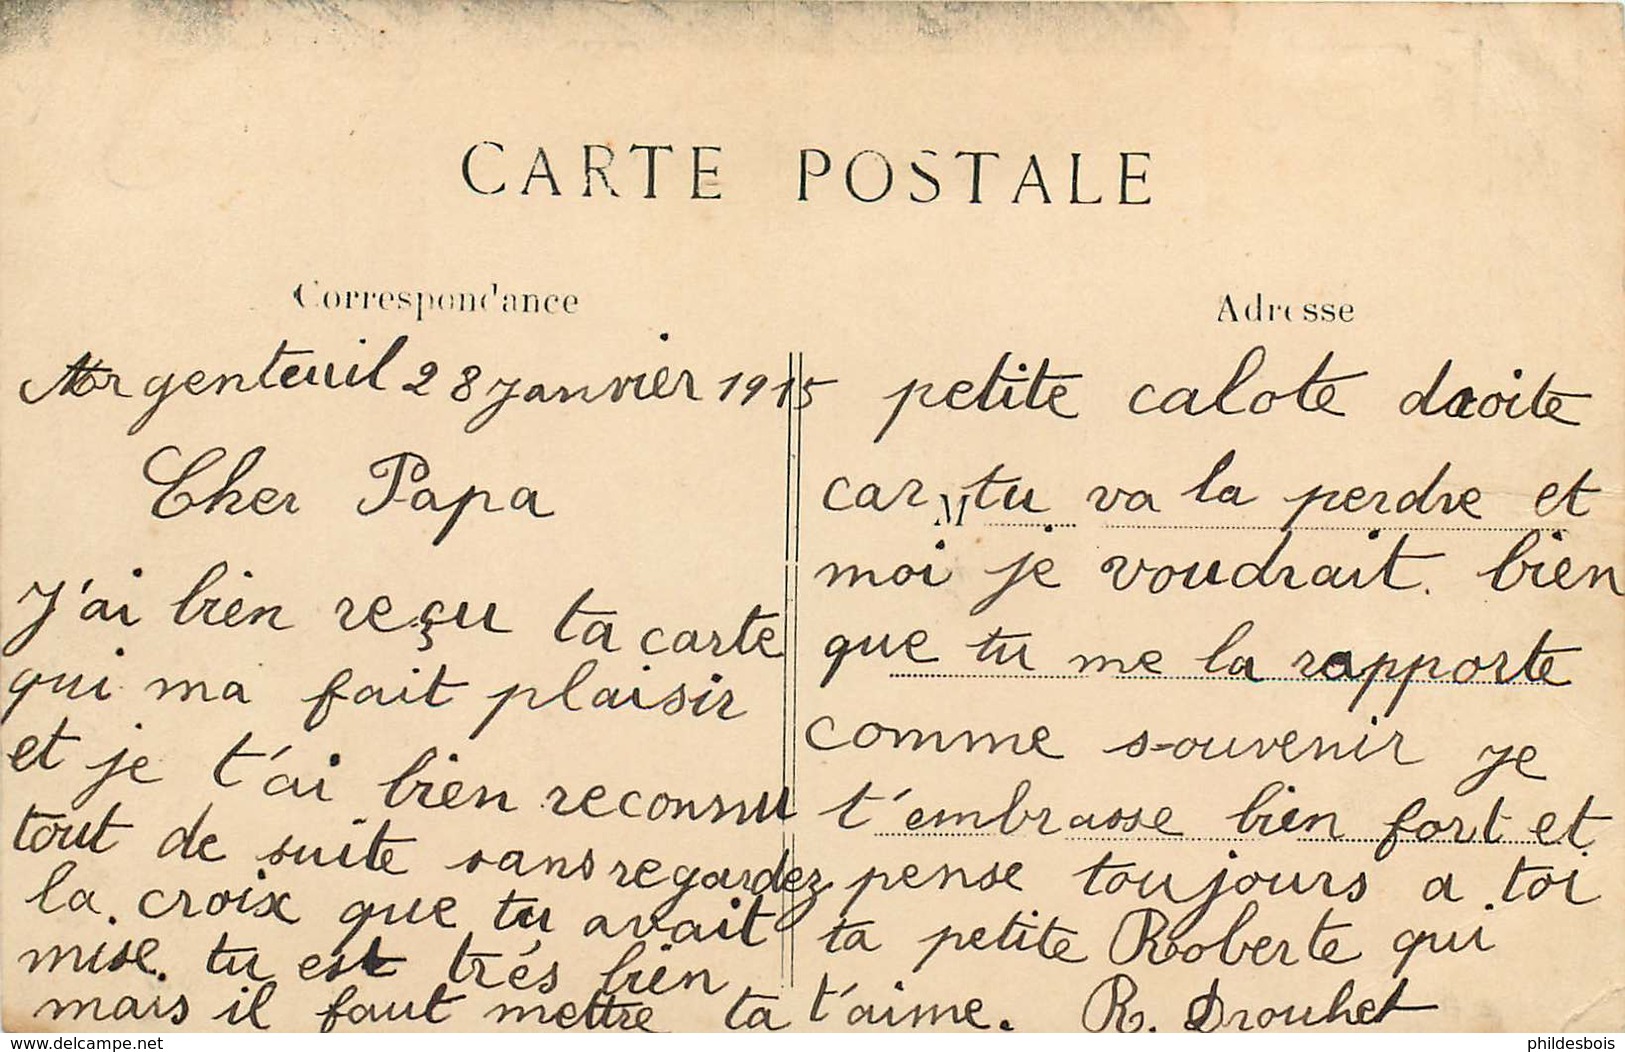 CARTE POSTALE
Correspondance
Argenteuil 28 Janvier 1915
Cher Papa
J'ai bien reçu ta carte
qui ma fait plaisir
et je t'ai bien reconnu
tout de suite sans regardez
la croix que tu avait
mise. tu est trés bien
mais il faut mettre ta
Adresse
petite calote droite
car tu va la perdre et
M
moi je voudrait bien
que tu me la rapporte
comme souvenir je
t'embrasse bien fort et
pense toujours a toi
ta petite Roberte qui
t'aime. R. Drouhet
delcampe.net
phildesbois